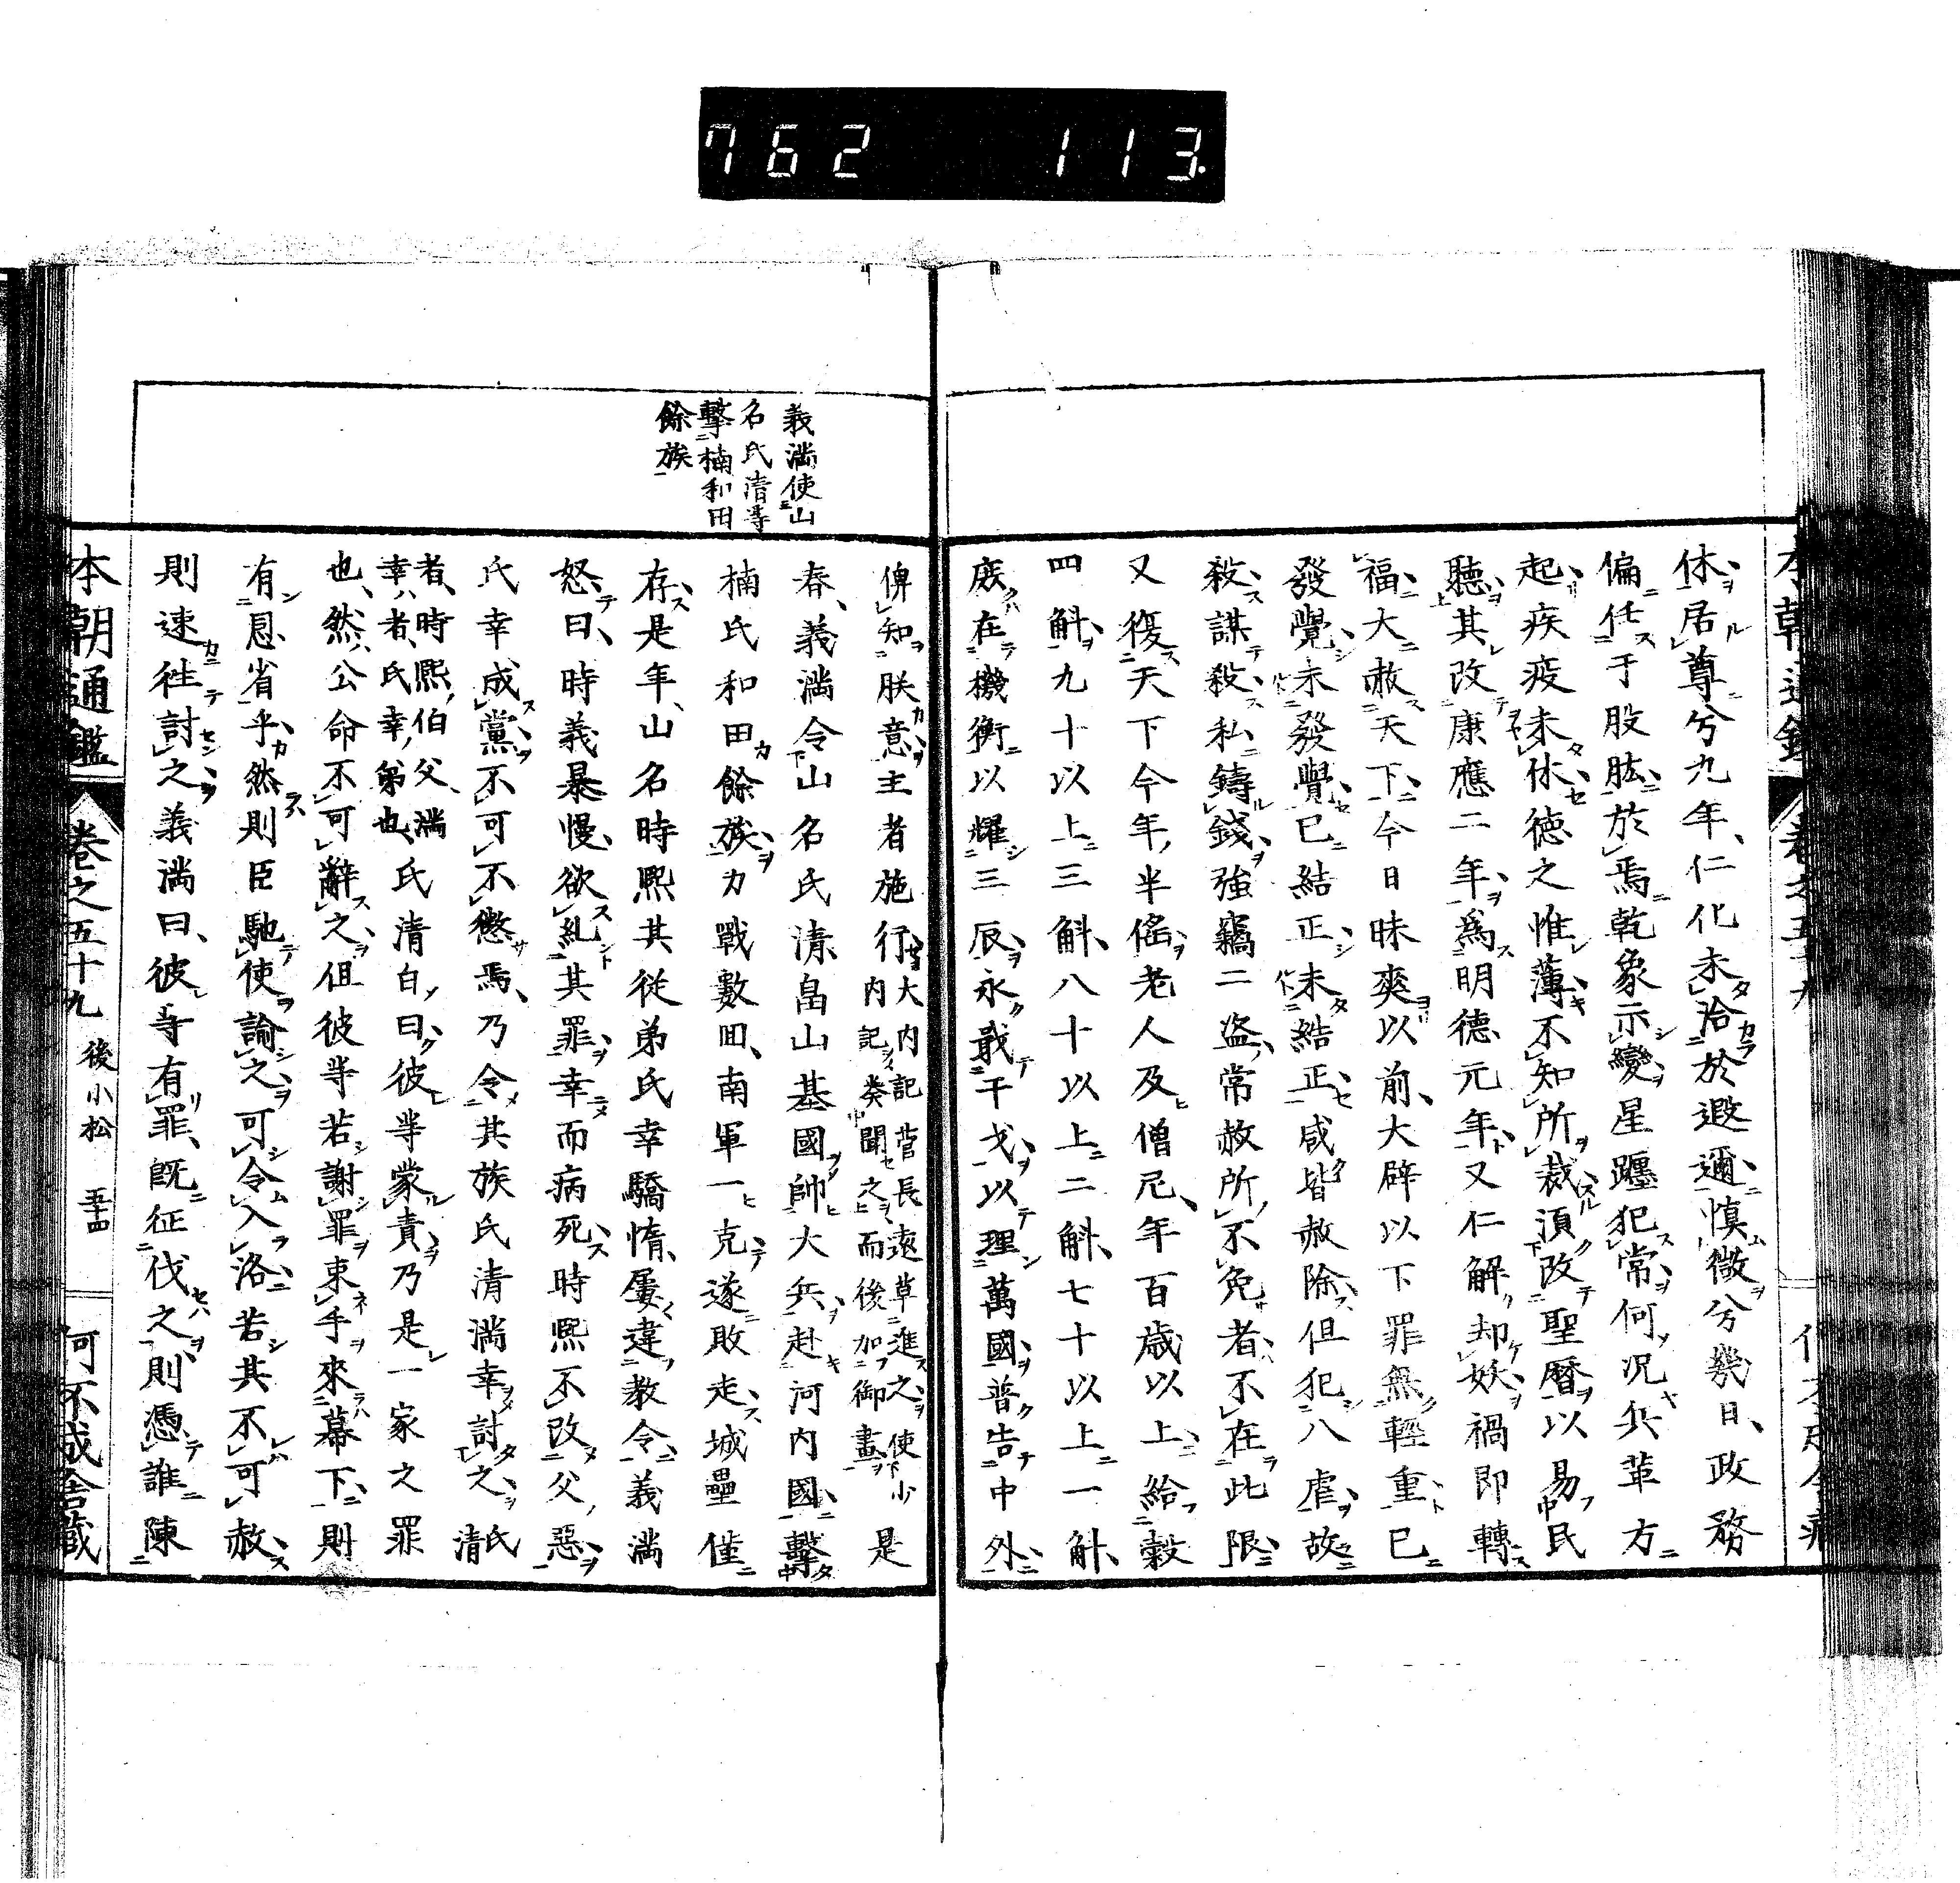 762 113
休居尊兮九年、仁化未洽於遐邇、慎微兮幾日、政務
偏任于股肱、於焉乾象示變、星躔犯常、何況兵革方
起、疾疫未休、徳之惟薄、不知所裁、須改聖暦以易民
聽、其改康應二年、爲明德元年、又仁解却妖、禍即轉
福、大赦天下、今日昧爽以前、大辟以下罪無輕重、已
發覺未發覺、已結正未結正、咸皆赦除、但犯八虐、故
殺謀殺、私鑄錢、強竊二盗、常赦所不免者、不在此限、
又復天下今年半傜、老人及僧尼、年百歳以上、給穀
四斛、九十以上三斛、八十以上二斛、七十以上一斛、
庶在機衡以耀三辰、永戢干戈、以理萬國、普告中外、
義満使山
名氏清等
擊楠和田
餘族
俾知朕意、主者施行、大内記菅長遠草進之、使少
内記奏聞之、而後加御畫、是
春、義満令山名氏清畠山基國帥大兵、赴河内國、擊
楠氏和田餘族、力戰數回、南軍一克、遂敗走、城壘僅
存、是年、山名時熙其従弟氏幸驕惰、屢違教令、義満
怒曰、時義暴慢、欲糺其罪、幸而病死、時熙不改父惡、
氏幸成黨、不可不懲焉、乃令其族氏清満幸討之、氏清
者、時熙伯父、満
幸者、氏幸弟也、氏清白曰、彼等蒙責、乃是一家之罪
也、然公命不可辭之、但彼等若謝罪、束手來幕下、則
有恩省乎、然則臣馳使諭之、可令入洛、若其不可赦、
則速往討之、義満曰、彼等有罪、既征伐之、則憑誰陳
本朝通鑑 卷之五十九 後小松 五十四 何不成舎藏